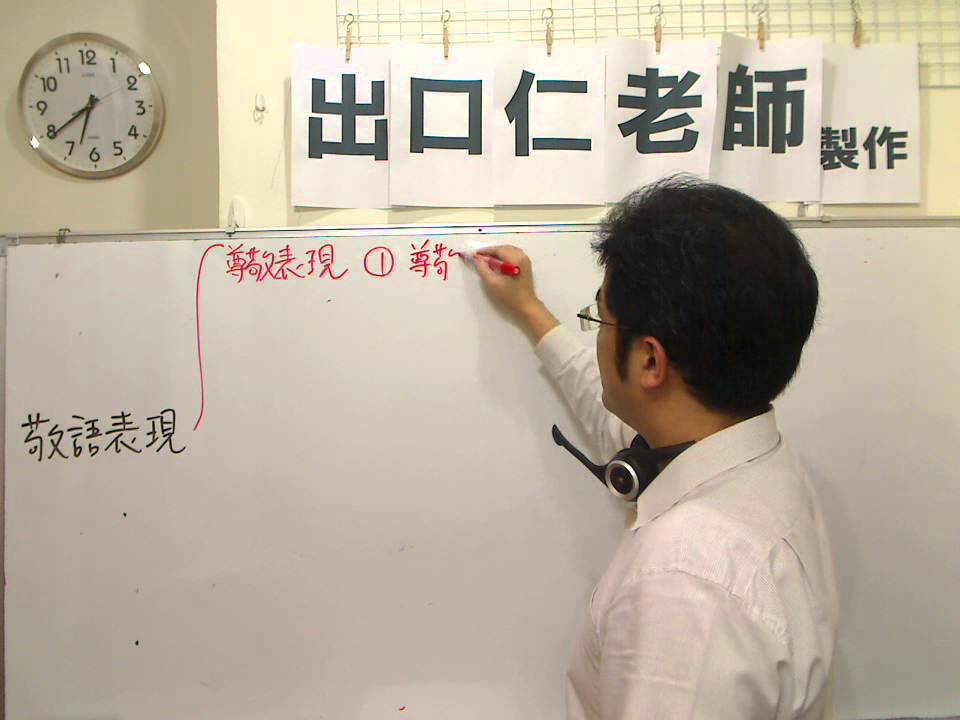 12
1
2
3
4
5
6
7
8
9
10
11
出口仁老師製作
尊敬表現 ① 尊敬
敬語表現